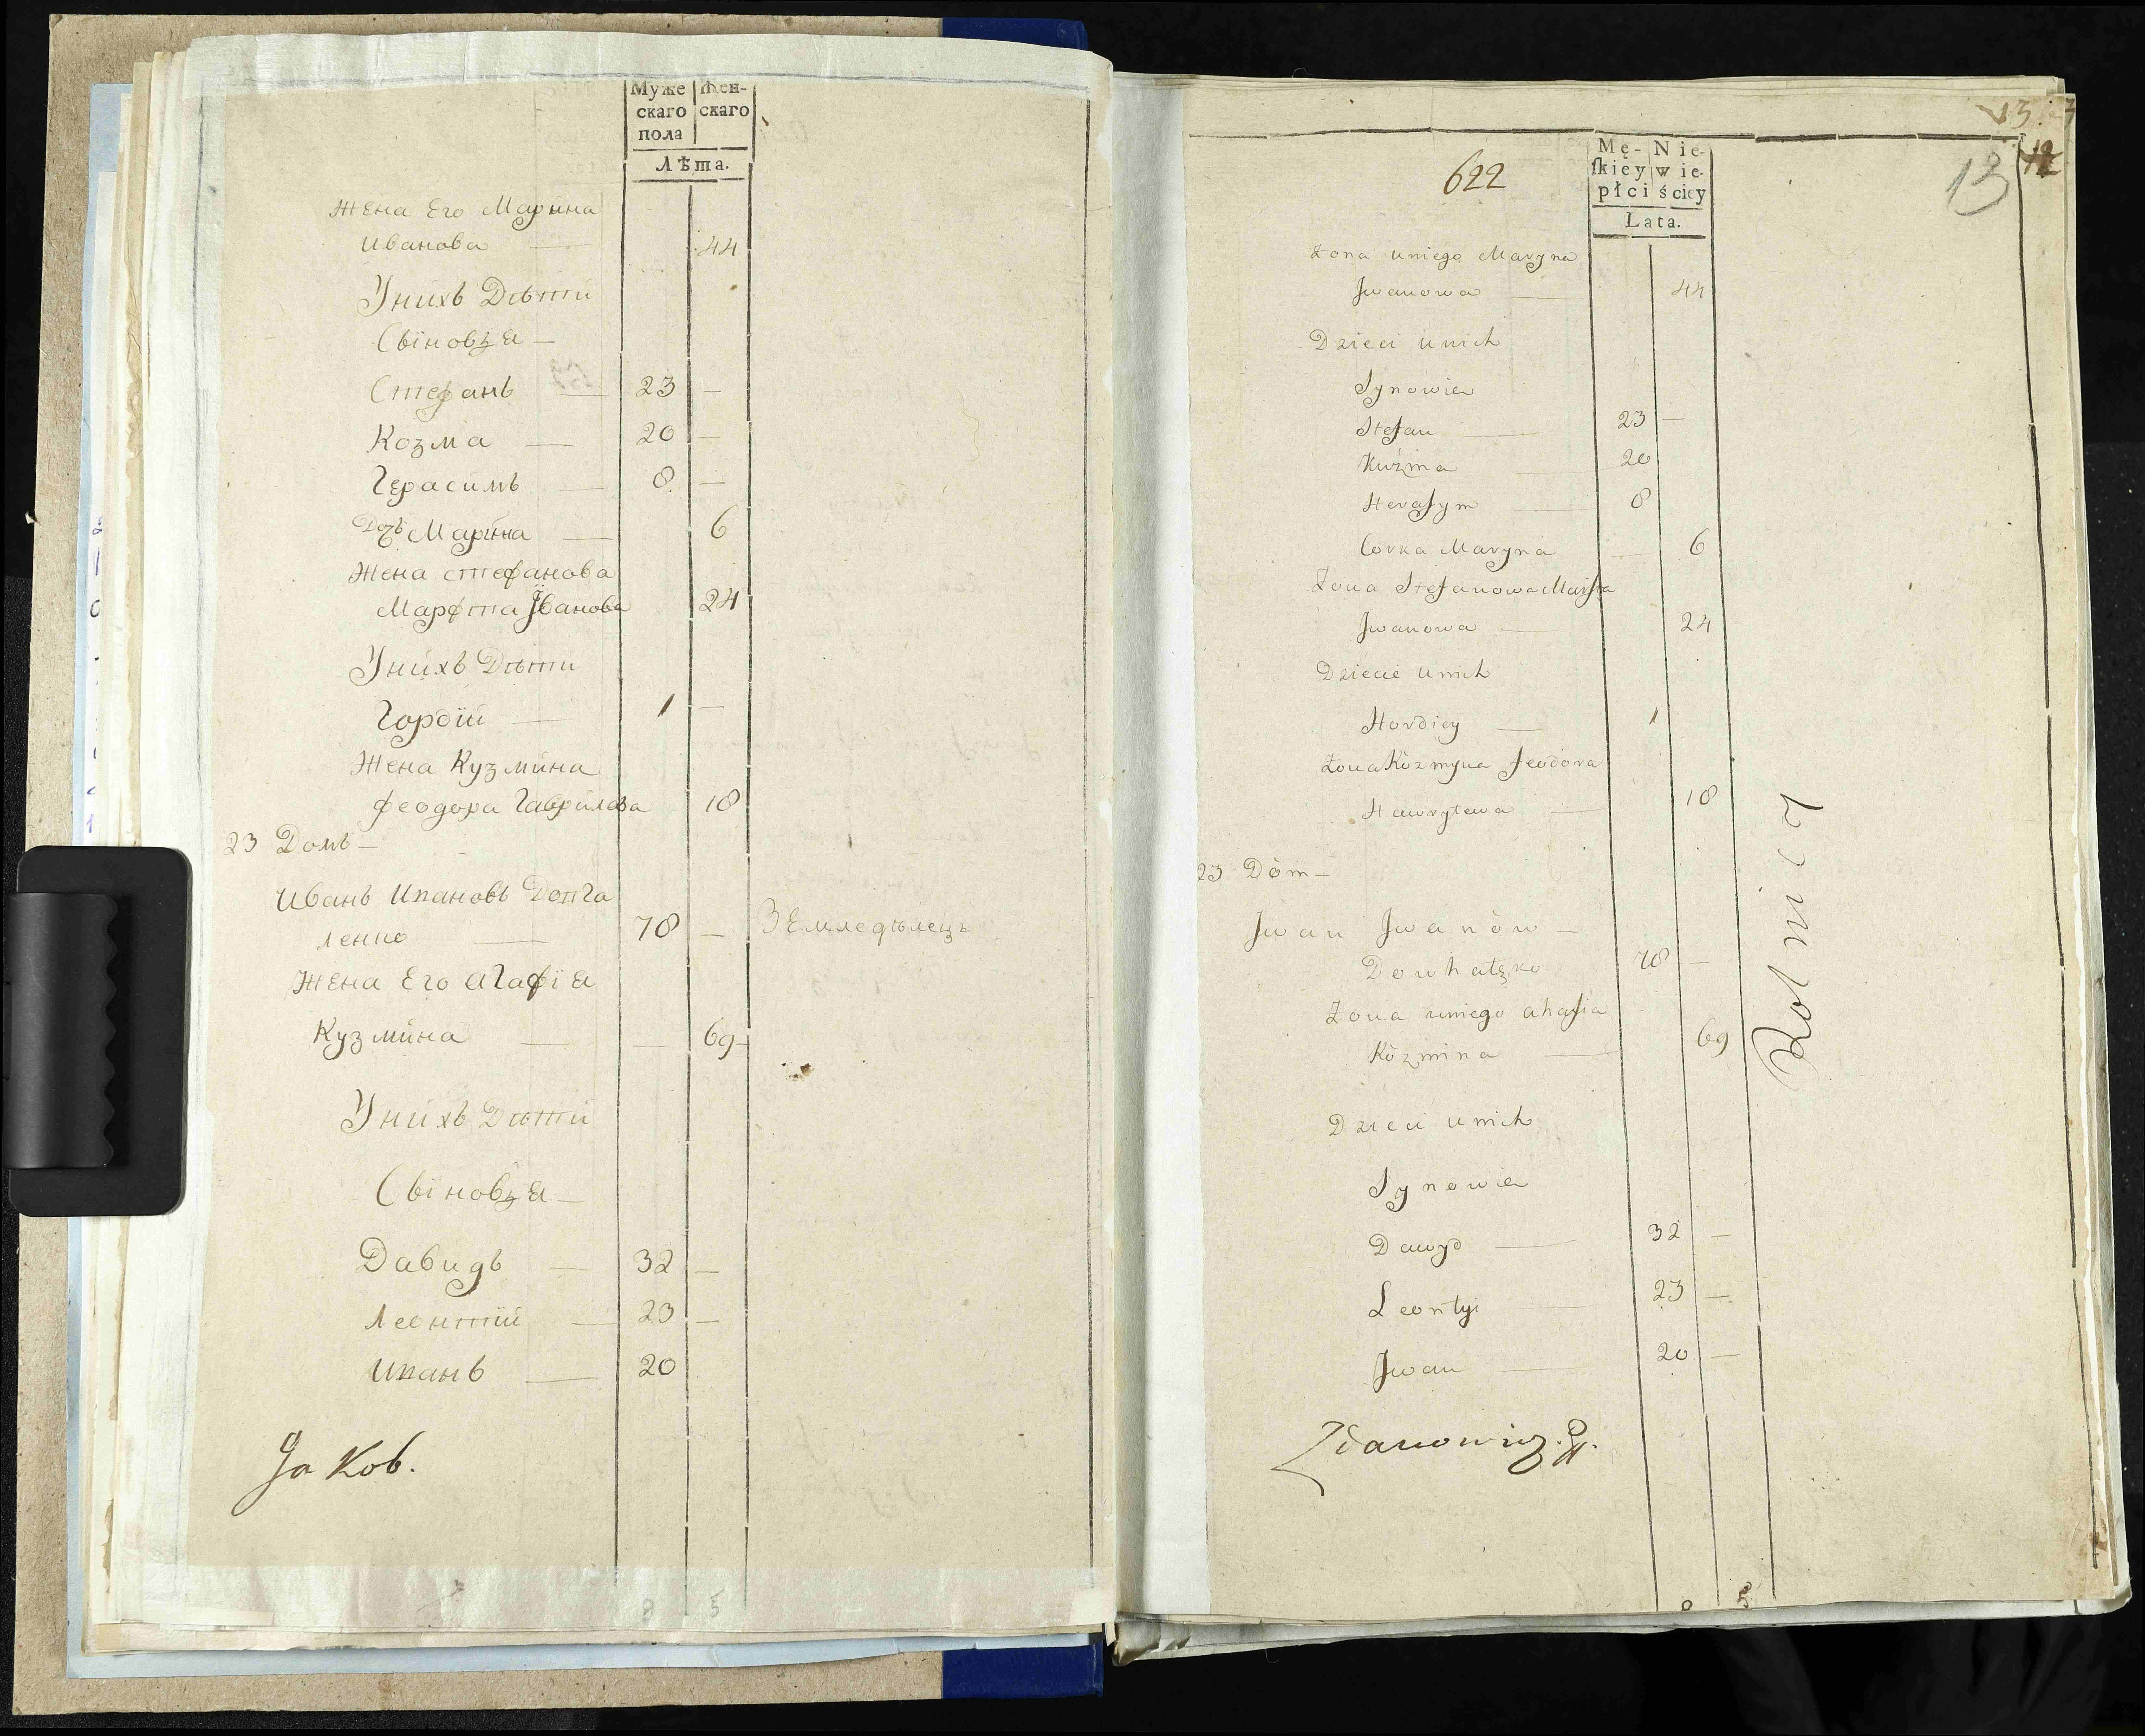 Муже Жен-
скаго скаго
пола
Лѣта.
Жена Его Марина
Иванова — 44
Унихъ Дѣти
Сыновья —
Стефанъ — 23 —
Козма — 20 —
Герасимъ — 8 —
Дочь Марина — 6
Жена стефанова
Марфта Іванова 24
Унихъ Дѣти
Гордій — 1 —
Жена Кузмина
феодора Гаврилова 18
23 Домъ —
Иванъ Ивановъ Долга
ленко — 78 — Земледѣлецъ
Жена Его агафія
Кузмина — — 69
Унихъ Дѣти
Сыновья —
Давидъ — 32 —
Леонтій — 23 —
Иванъ — 20
Яковъ.
8 5
13
12
622
13
Mę- Nie-
ſkiey wie-
płci ściey
Lata.
Żona uniego Maryna
Jwanowa — 44
Dzieci unich
Synowie
Stefan — 23 —
Kuźma — 20
Herasym — 8
Corka Maryna — 6
Żona Stefanowa Marfta
Jwanowa — 24
Dziecie unich
Hordiey — 1
Żona Kózmyna Feodora
Hawryłewa — 18
23 Dóm —
Jwan Jwanów —
Dowhałęko 78 —
Żona uniego ahafia
Kózmina — 69
Rolnicy
Dzieci unich
Synowie
Dawyd — 32 —
Leontyi — 23 —
Jwan — 20 —
Zdanowicz
8 5